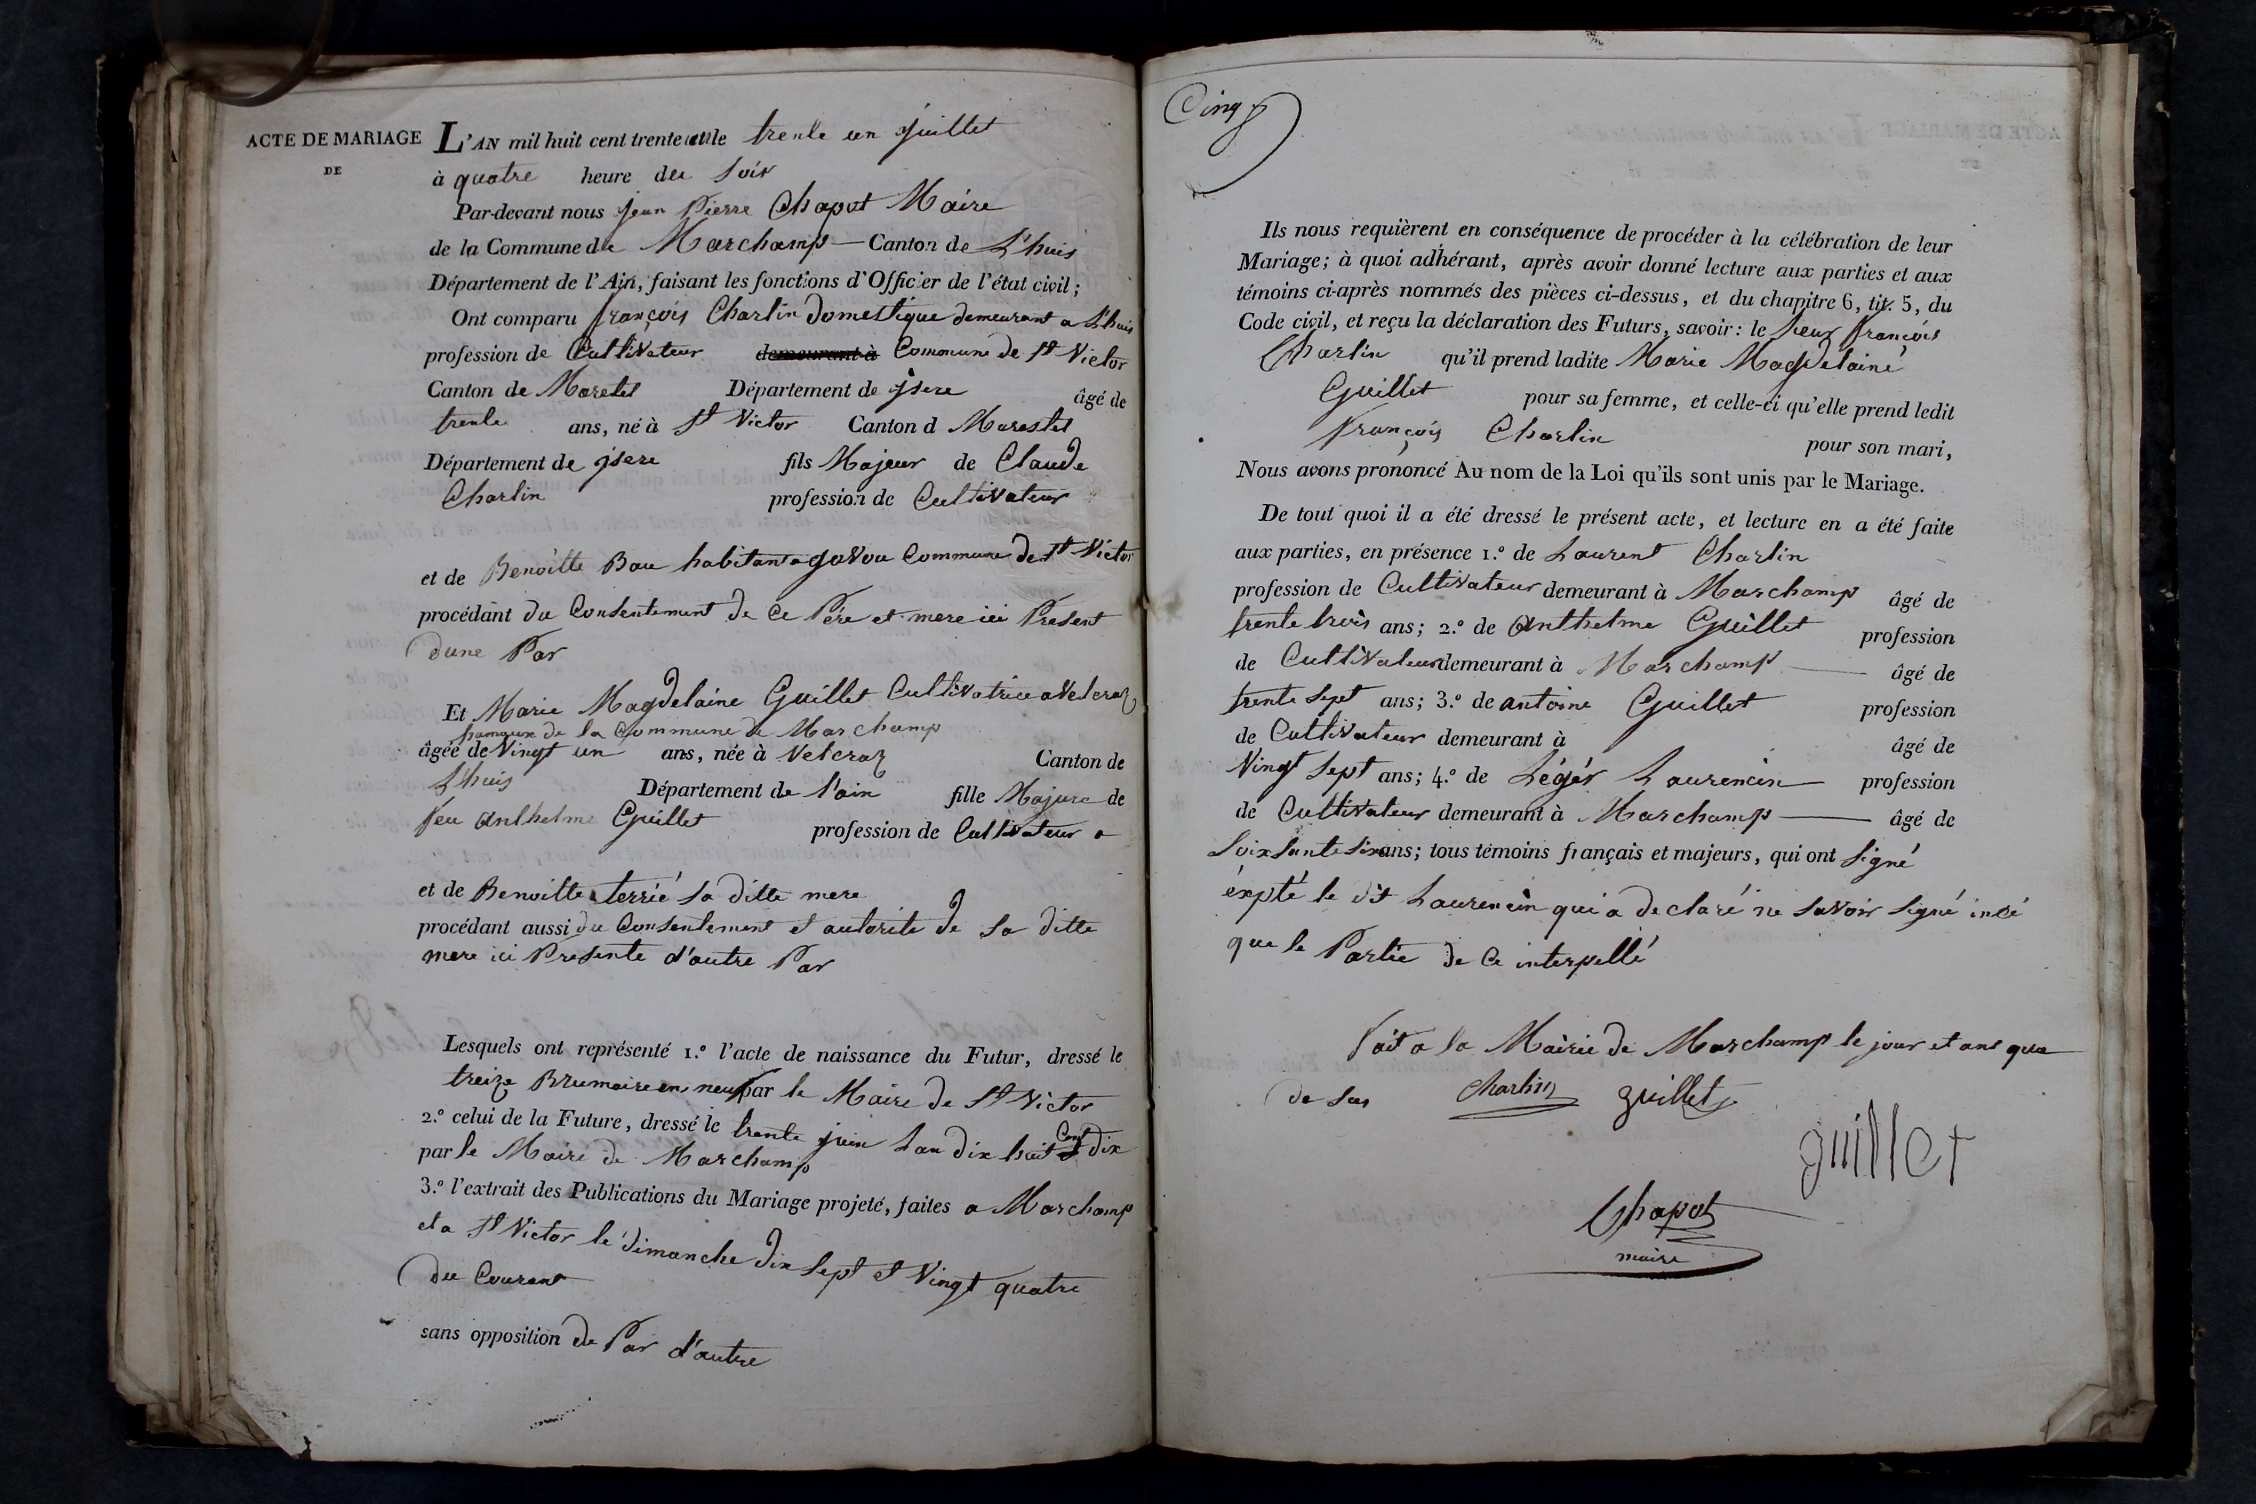 ACTE DE MARIAGE
DE
L'AN mil huit cent trente et un le trente un juillet
à quatre heure du soir
Par-devant nous jean Pierre Chapot Maire
de la Commune de Marchamp — Canton de L'huis
Département de l'Ain, faisant les fonctions d'Officier de l'état civil ;
Ont comparu françois Charlin domestique demeurant a L'huis
profession de Cultivateur demeurant à Commune de St Victor
Canton de Maretel Département de jsere âgé de
trente ans, né à St Victor Canton d Marestel
Département de jsere fils Majeur de Claude
Charlin profession de Cultivateur
et de Benoitte Bau habitant a Commune de St Victor
procédant du Consentement de Ce Pére et mere ici Present
dune Par
Et Marie Magdelaine Guillet Cultivatrice a Velcraz
hameux de la Commune de Marchamp
âgée de Vingt un ans, née à Velcraz Canton de
L'huis Département de l'ain fille Majure de
feu Anthelme Guillet profession de Cultivateur a
et de Benoitte terrié sa ditte mere
procédant aussi du Consentement et autorite de sa ditte
mere ici Presente d'autre Par
Lesquels ont représenté 1.° l'acte de naissance du Futur, dressé le
treize Brumaire an neuf par le Maire de St Victor
2.° celui de la Future, dressé le trente juin Lan dix huit Cent dix
par le Maire de Marchamp
3.° l'extrait des Publications du Mariage projeté, faites a Marchamp
et a St Victor le dimanche dix sept et Vingt quatre
du Courant
sans opposition de Par d'autre
Cinq
Ils nous requièrent en conséquence de procéder à la célébration de leur
Mariage ; à quoi adhérant, après avoir donné lecture aux parties et aux
témoins ci-après nommés des pièces ci-dessus, et du chapitre 6, tit. 5, du
Code civil, et reçu la déclaration des Futurs, savoir : le sieur françois
Charlin qu'il prend ladite Marie Magdelaine
Guillet pour sa femme, et celle-ci qu'elle prend ledit
François Charlin pour son mari,
Nous avons prononcé Au nom de la Loi qu'ils sont unis par le Mariage.
De tout quoi il a été dressé le présent acte, et lecture en a été faite
aux parties, en présence 1.° de Laurent Charlin
profession de Cultivateur demeurant à Marchamp âgé de
trente trois ans ; 2.° de Anthelme Guillet profession
de Cultivateur demeurant à Marchamp — âgé de
trente sept ans ; 3.° de antoine Guillet profession
de Cultivateur demeurant à âgé de
Vingt sept ans ; 4.° de Légér Laurencin — profession
de Cultivateur demeurant à Marchamp — âgé de
soixsante six ans ; tous témoins français et majeurs, qui ont signé
éxpté le dit Laurencin qui a declaré ne savoir signé insi
que le Partie de Ce interpellé
Fait a la Mairie de Marchamp le jour et ans que
de sus Charlin guillet
guillet
Chapot
maire